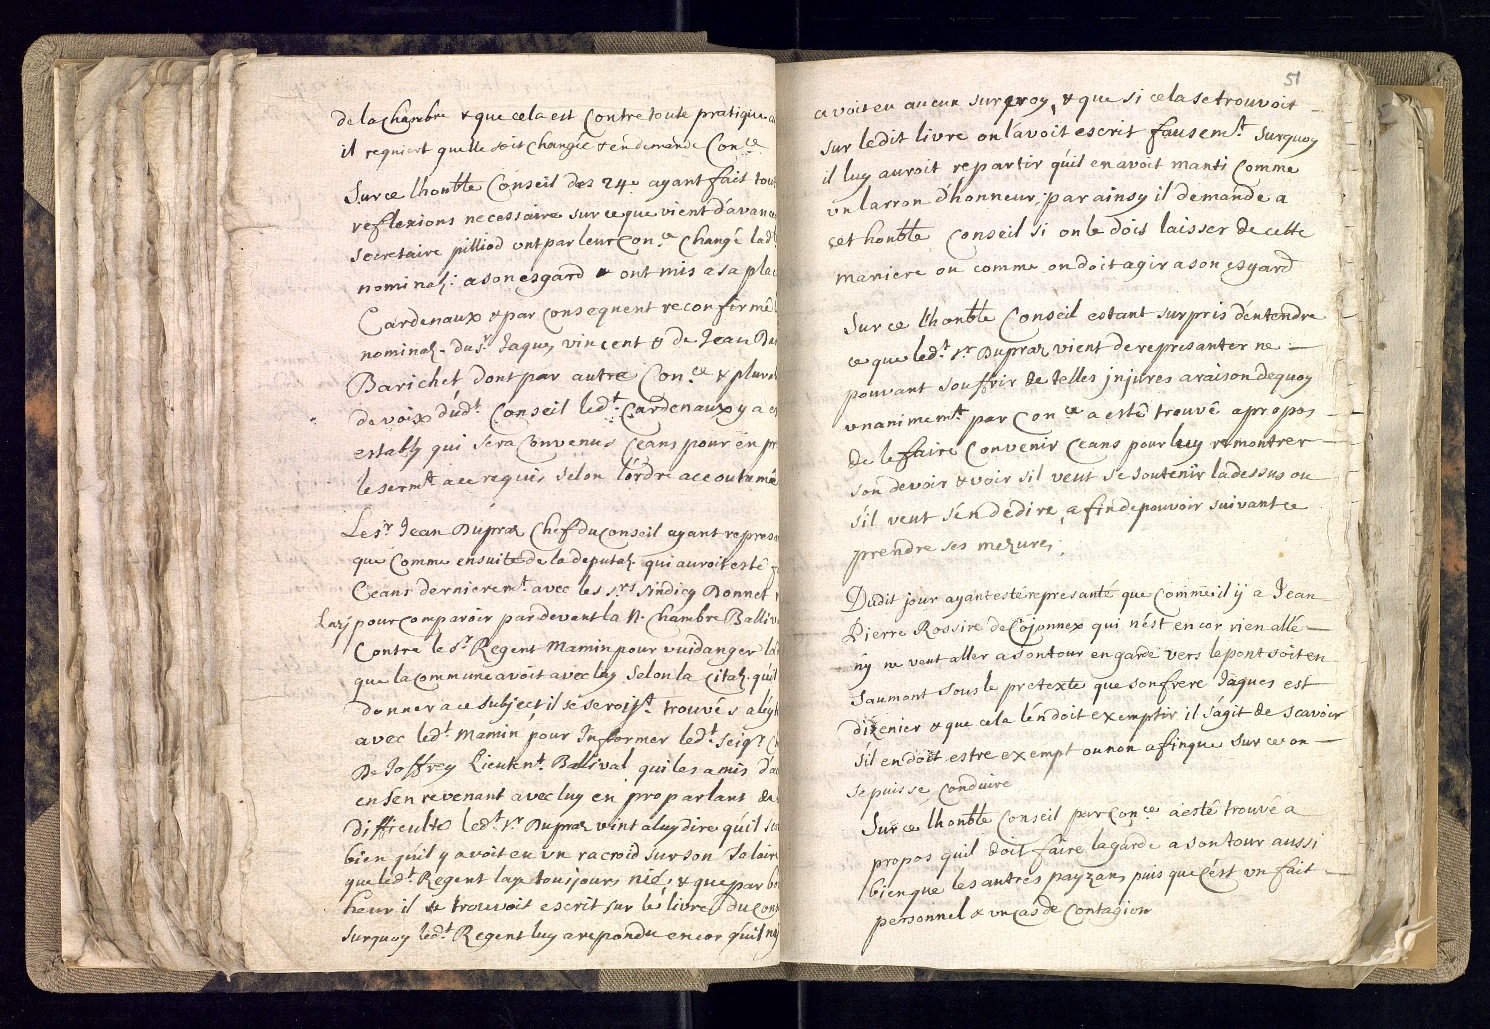 de la Chambre & que cela est Contre toute pratique
il requiert quelle soit changée & en demande Con.ce
Sur ce lhonble Conseil des 24e ayant fait tout
reflexions necessaire sur ce que vient d'avancer
secretaire pilliod ont par leur Con.ce changé lad.t
nominaz: a son esgard & ont mis a sa plac
Cardenaux & par Consequent reconfirmé
nominaz. du s.r Jaques vincent & de Jean Du
Barichet dont par autre Con.ce & plural
de voix dud.t Conseil led.t Cardenaux y a e
establÿ qui sera Convenus Ceans pour en pr
le serm.t a ce requis selon l'ordre accoutumé
Le s.r Jean Dupraz Chef du Conseil ayant represa
que Comme ensuite de la deputaz. qui auroit esté
Ceans dernierem.t avec les s.rs sindicq Bonnet
pour comparoir par devent la N. Chambre Balliv
Contre le s.r Regent Mamin pour vuidanger la
que la commune avoit avec luy selon la Citaz. qu'il
donner a ce subject il se seroiz.t trouvés a
avec led.t Mamin, pour Informer led.t seig.r
De Joffrey Lieuten.t Ballival qui les a mis d'a
en s'en revenant avec luy en proparlant de
difficulté led.t s.r Dupraz vint a luy dire quil
bien qu'il y avoit eu vn racroid sur son Salaire
que led.t Regent la tousjours nié, & que par bo
heur il se trouvoit escrit sur le livre du Cons
surquoy led.t Regent luy a repondu encor qu'il n'y
51
avoit eu aucun surcroy, & que si cela se trouvoit
sur ledit livre on l'avoit escrit fausem.t surquoy
il luy auroit repartir qu'il en avoit manti Comme
vn larron d'honneur; par ainsy il demande a
cet honble Conseil si on le dois laisser de cette
maniere ou comme on doit agir a son esgard
Sur ce lhonble Conseil estant surpris dentendre
ce que led.t s.r Dupraz vient de represanter ne
pouvant souffrir de telles jnjures a raison de quoy
vnanimem.t par Con.ce a esté trouvé a propos
de le faire Convenir Ceans pour luy remontrer
son devoir & voir sil veut se soutenir la dessus ou
s'il veut s'en dédire, afin de pouvoir suivant ce
prendre ses mezures,
Dudit jour ayant esté represanté que Comme il ÿ a Jean
Pierre Rossire de Cojonnex qui n'ést encor rien allé
nÿ ne veut aller a son tour en garde vers le pont soit en
Saumont sous le pretexte que son frere Jâques est
dizenier & que cela l'en doit exemptir il s'agit de scavoir
s'il en doit estre exempt ou non afin que sur ce on
se puisse conduire
Sur ce lhonble Conseil par Con.ce a esté trouvé a
propos quil doit faire la garde a son tour aussi
bien que les autres payzans puis que c'ést vn fait
personnel & vn cas de Contagion